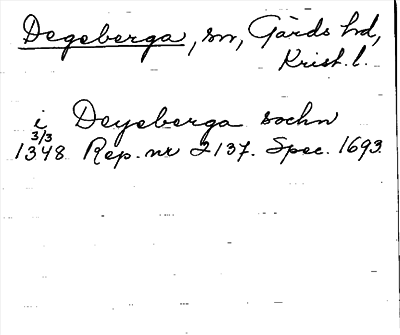 Degeberga, sn, Gärds hd,
Krist. l.
i Deyeberga sochn
3/3
1348 Rep. nr 2137. Spec. 1693.